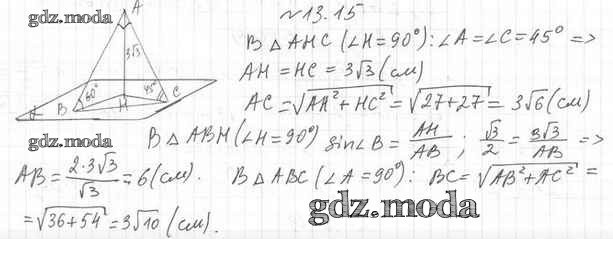 gdz.moda
A
3√3
60°
45°
B
H
C
α
gdz.moda
№13.15
В △ AHC (∠H=90°): ∠A=∠C=45° =>
AH = HC = 3√3 (см)
AC = √AH²+HC² = √27+27 = 3√6 (см)
В △ ABH (∠H=90°) sin∠B = AH/AB ; √3/2 = 3√3/AB =>
AB = 2·3√3/√3 = 6 (см).
В △ ABC (∠A=90°): BC = √AB²+AC² =
= √36+54 = 3√10 (см).
gdz.moda